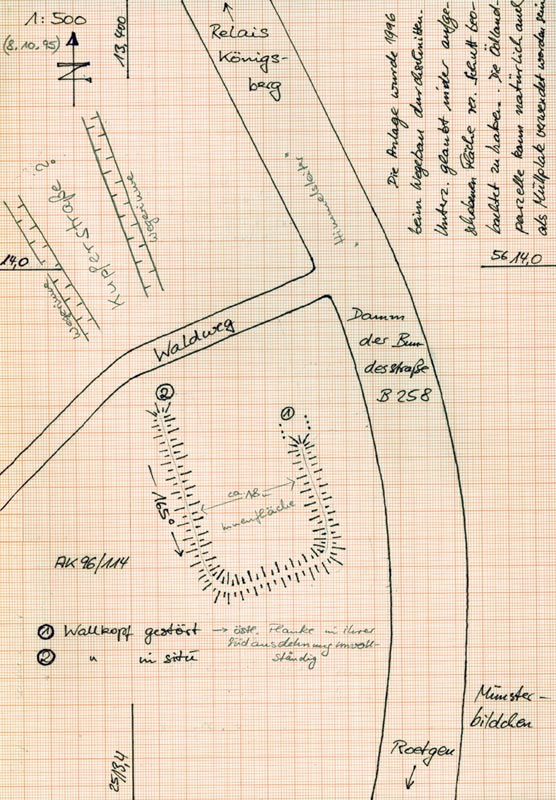 1:500
(8.10.95)
N
13,400
Relais
Königs-
berg
Die Anlage wurde 1996
beim Wegebau durchschnitten.
Unterz. glaubt in der aufge-
schobenen Fläche röm. Schutt beo-
bachtet zu haben. Die Ödland-
parzelle kann natürlich auch
als Müllplatz verwendet worden sein
"Himmelsleiter"
Kupferstraße ?
Wegerinne
Wegerinne
14,0
56 14,0
Waldweg
Damm
der Bun
desstraße
B 258
②
①
ca 18.-
Innenfläche
165°
AK 96/114
① Wallkopf gestört → östl. Flanke in ihrer
Südausdehnung unvoll-
ständig
② " in situ
Münster-
bildchen
Roetgen
2513,4